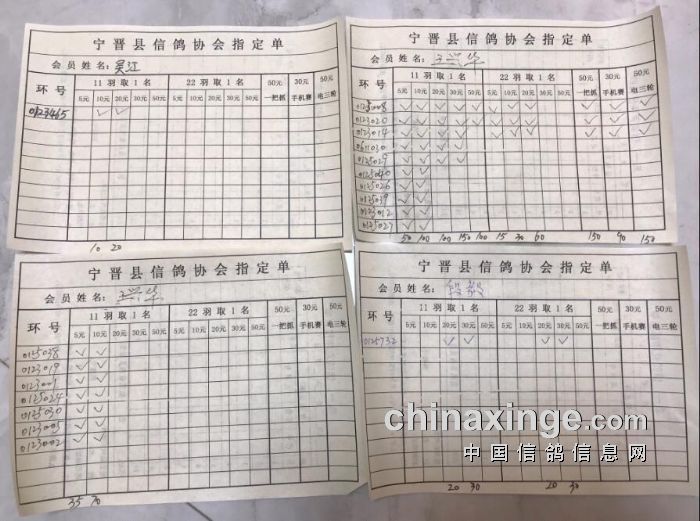 宁晋县信鸽协会指定单
会员姓名: 吴江
环号 11羽取1名 22羽取1名 50元 30元 50元
5元 10元 20元 30元 50元 5元 10元 20元 30元 50元 一把抓 手机赛 电三轮
0123465 ✓ ✓
10 20
宁晋县信鸽协会指定单
会员姓名: 王兴华
环号 11羽取1名 22羽取1名 50元 30元 50元
5元 10元 20元 30元 50元 5元 10元 20元 30元 50元 一把抓 手机赛 电三轮
0123008
0123020
0123014
0611030
0125029
0125040
0125026
0125039
0123012
0125027
50 100 100 150 100 15 30 60 150 90 150
宁晋县信鸽协会指定单
会员姓名: 王兴华
环号 11羽取1名 22羽取1名 50元 30元 50元
5元 10元 20元 30元 50元 5元 10元 20元 30元 50元 一把抓 手机赛 电三轮
0125038 ✓ ✓
0123019 ✓ ✓
0123001 ✓ ✓
0125024 ✓ ✓
0125030 ✓ ✓
0123005 ✓ ✓
0123002 ✓ ✓
35 70
宁晋县信鸽协会指定单
会员姓名: 段毅
环号 11羽取1名 22羽取1名 50元 30元 50元
5元 10元 20元 30元 50元 5元 10元 20元 30元 50元 一把抓 手机赛 电三轮
0125732 ✓ ✓ ✓ ✓
20 30 20 30
chinaxinge.com
中国信鸽信息网